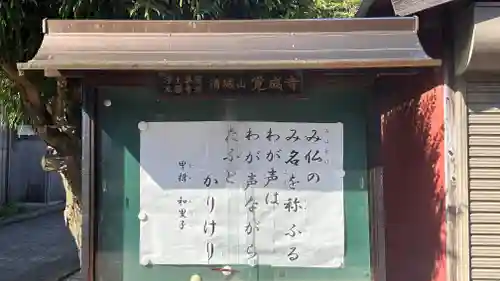 清瀧山 覚成寺
み仏の
み名を称ふる
わが声は
わが声ながら
たふと
かりけり
甲斐 和里子